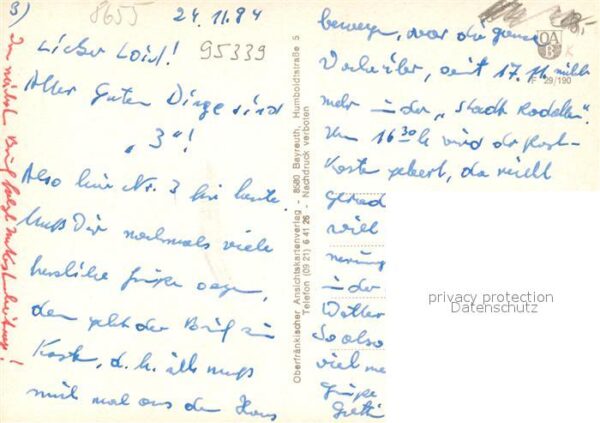 3)
8655
24.11.84
Lieber Loisl!
95339
Aller Guten Dinge sind
"3"!
Also hier Nr. 3 für heute.
Muß Dir nochmals viele
herzliche Grüße sagen,
denn geht der Brief zum
Kasten, d. h. ich muß
mal aus dem Haus
Im nächsten Brief folgt
Oberfränkischer Ansichtskartenverlag - 8580 Bayreuth, Humboldtstraße 5
Telefon (09 21) 6 41 26 - Nachdruck verboten
OAB
F 29/190
bewegen, war die ganze
seit 17.11. nicht
mehr in der "Stadt
Um 16 30 h wird der Post-
Kasten geleert, da nicht
gerad
will
in der
Wetter
So also
viel me
Grüße
privacy protection
Datenschutz